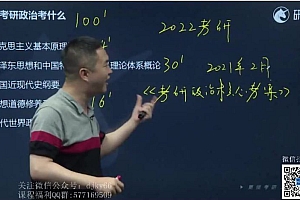 考研政治考什么
100'
2022考研
克思主义基本原理
泽东思想和中国特
理论体系概论
30'
2021年2月
国近现代史纲要
《考研政治核心考案》
想道德修养
16'
代世界政
关注微信公众号:
课程福利QQ群:577169509